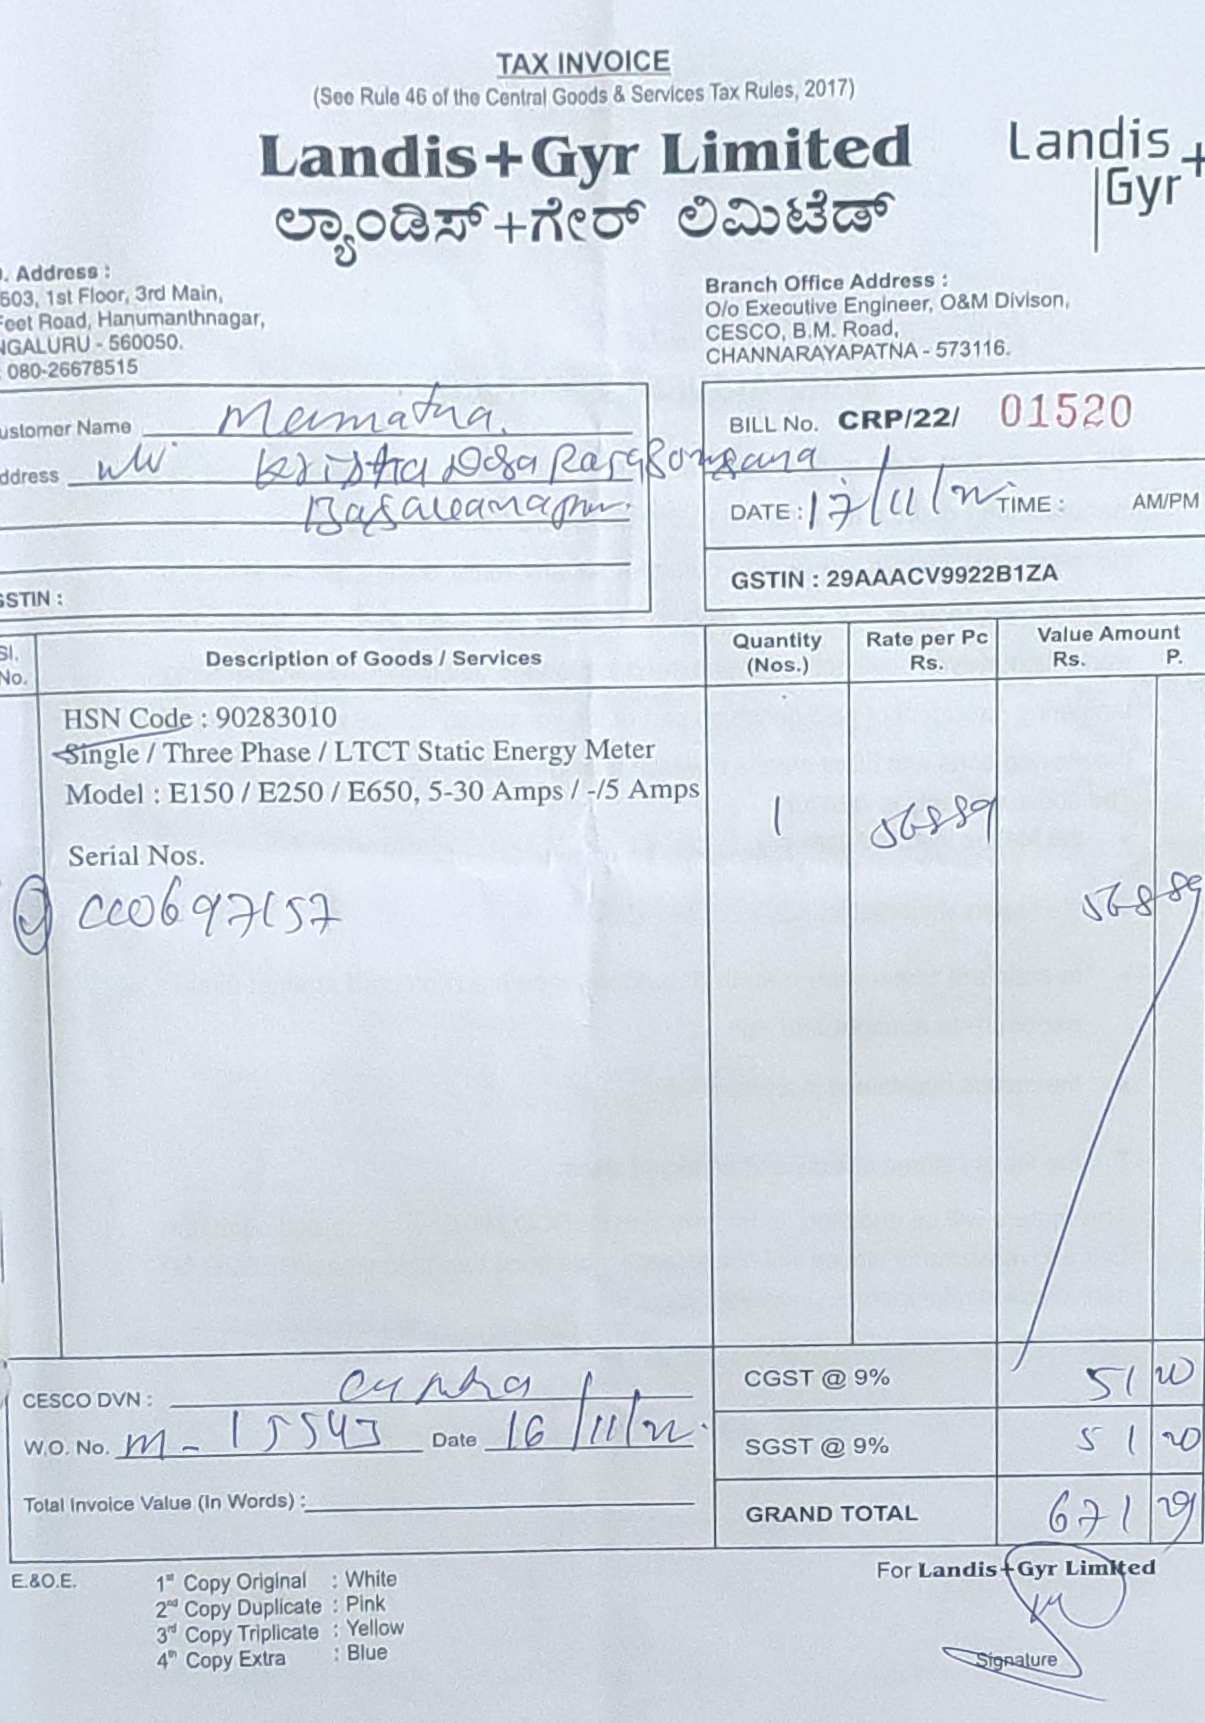 TAX INVOICE
(See Rule 46 of the Central Goods & Services Tax Rules, 2017)
Landis+Gyr Limited
ಲ್ಯಾಂಡಿಸ್+ಗೇರ್ ಲಿಮಿಟೆಡ್
Landis
Gyr+
. Address :
503, 1st Floor, 3rd Main,
Feet Road, Hanumanthnagar,
NGALURU - 560050.
: 080-26678515
Branch Office Address :
O/o Executive Engineer, O&M Divison,
CESCO, B.M. Road,
CHANNARAYAPATNA - 573116.
ustomer Name Mamatha.
ddress
GSTIN :
BILL No. CRP/22/ 01520
DATE : 17/11/22 TIME : AM/PM
GSTIN : 29AAACV9922B1ZA
Sl. No. Description of Goods / Services Quantity (Nos.) Rate per Pc Rs. Value Amount Rs. P.
HSN Code : 90283010
Single / Three Phase / LTCT Static Energy Meter
Model : E150 / E250 / E650, 5-30 Amps / -/5 Amps
1 56889
Serial Nos.
56889
CC0697157
CESCO DVN :
W.O. No. M - 15543 Date 16/11/22.
Total Invoice Value (In Words) :
CGST @ 9% 51 20
SGST @ 9% 51 20
GRAND TOTAL 671 29
E.&O.E.
1st Copy Original : White
2nd Copy Duplicate : Pink
3rd Copy Triplicate : Yellow
4th Copy Extra : Blue
For Landis+Gyr Limited
Signature